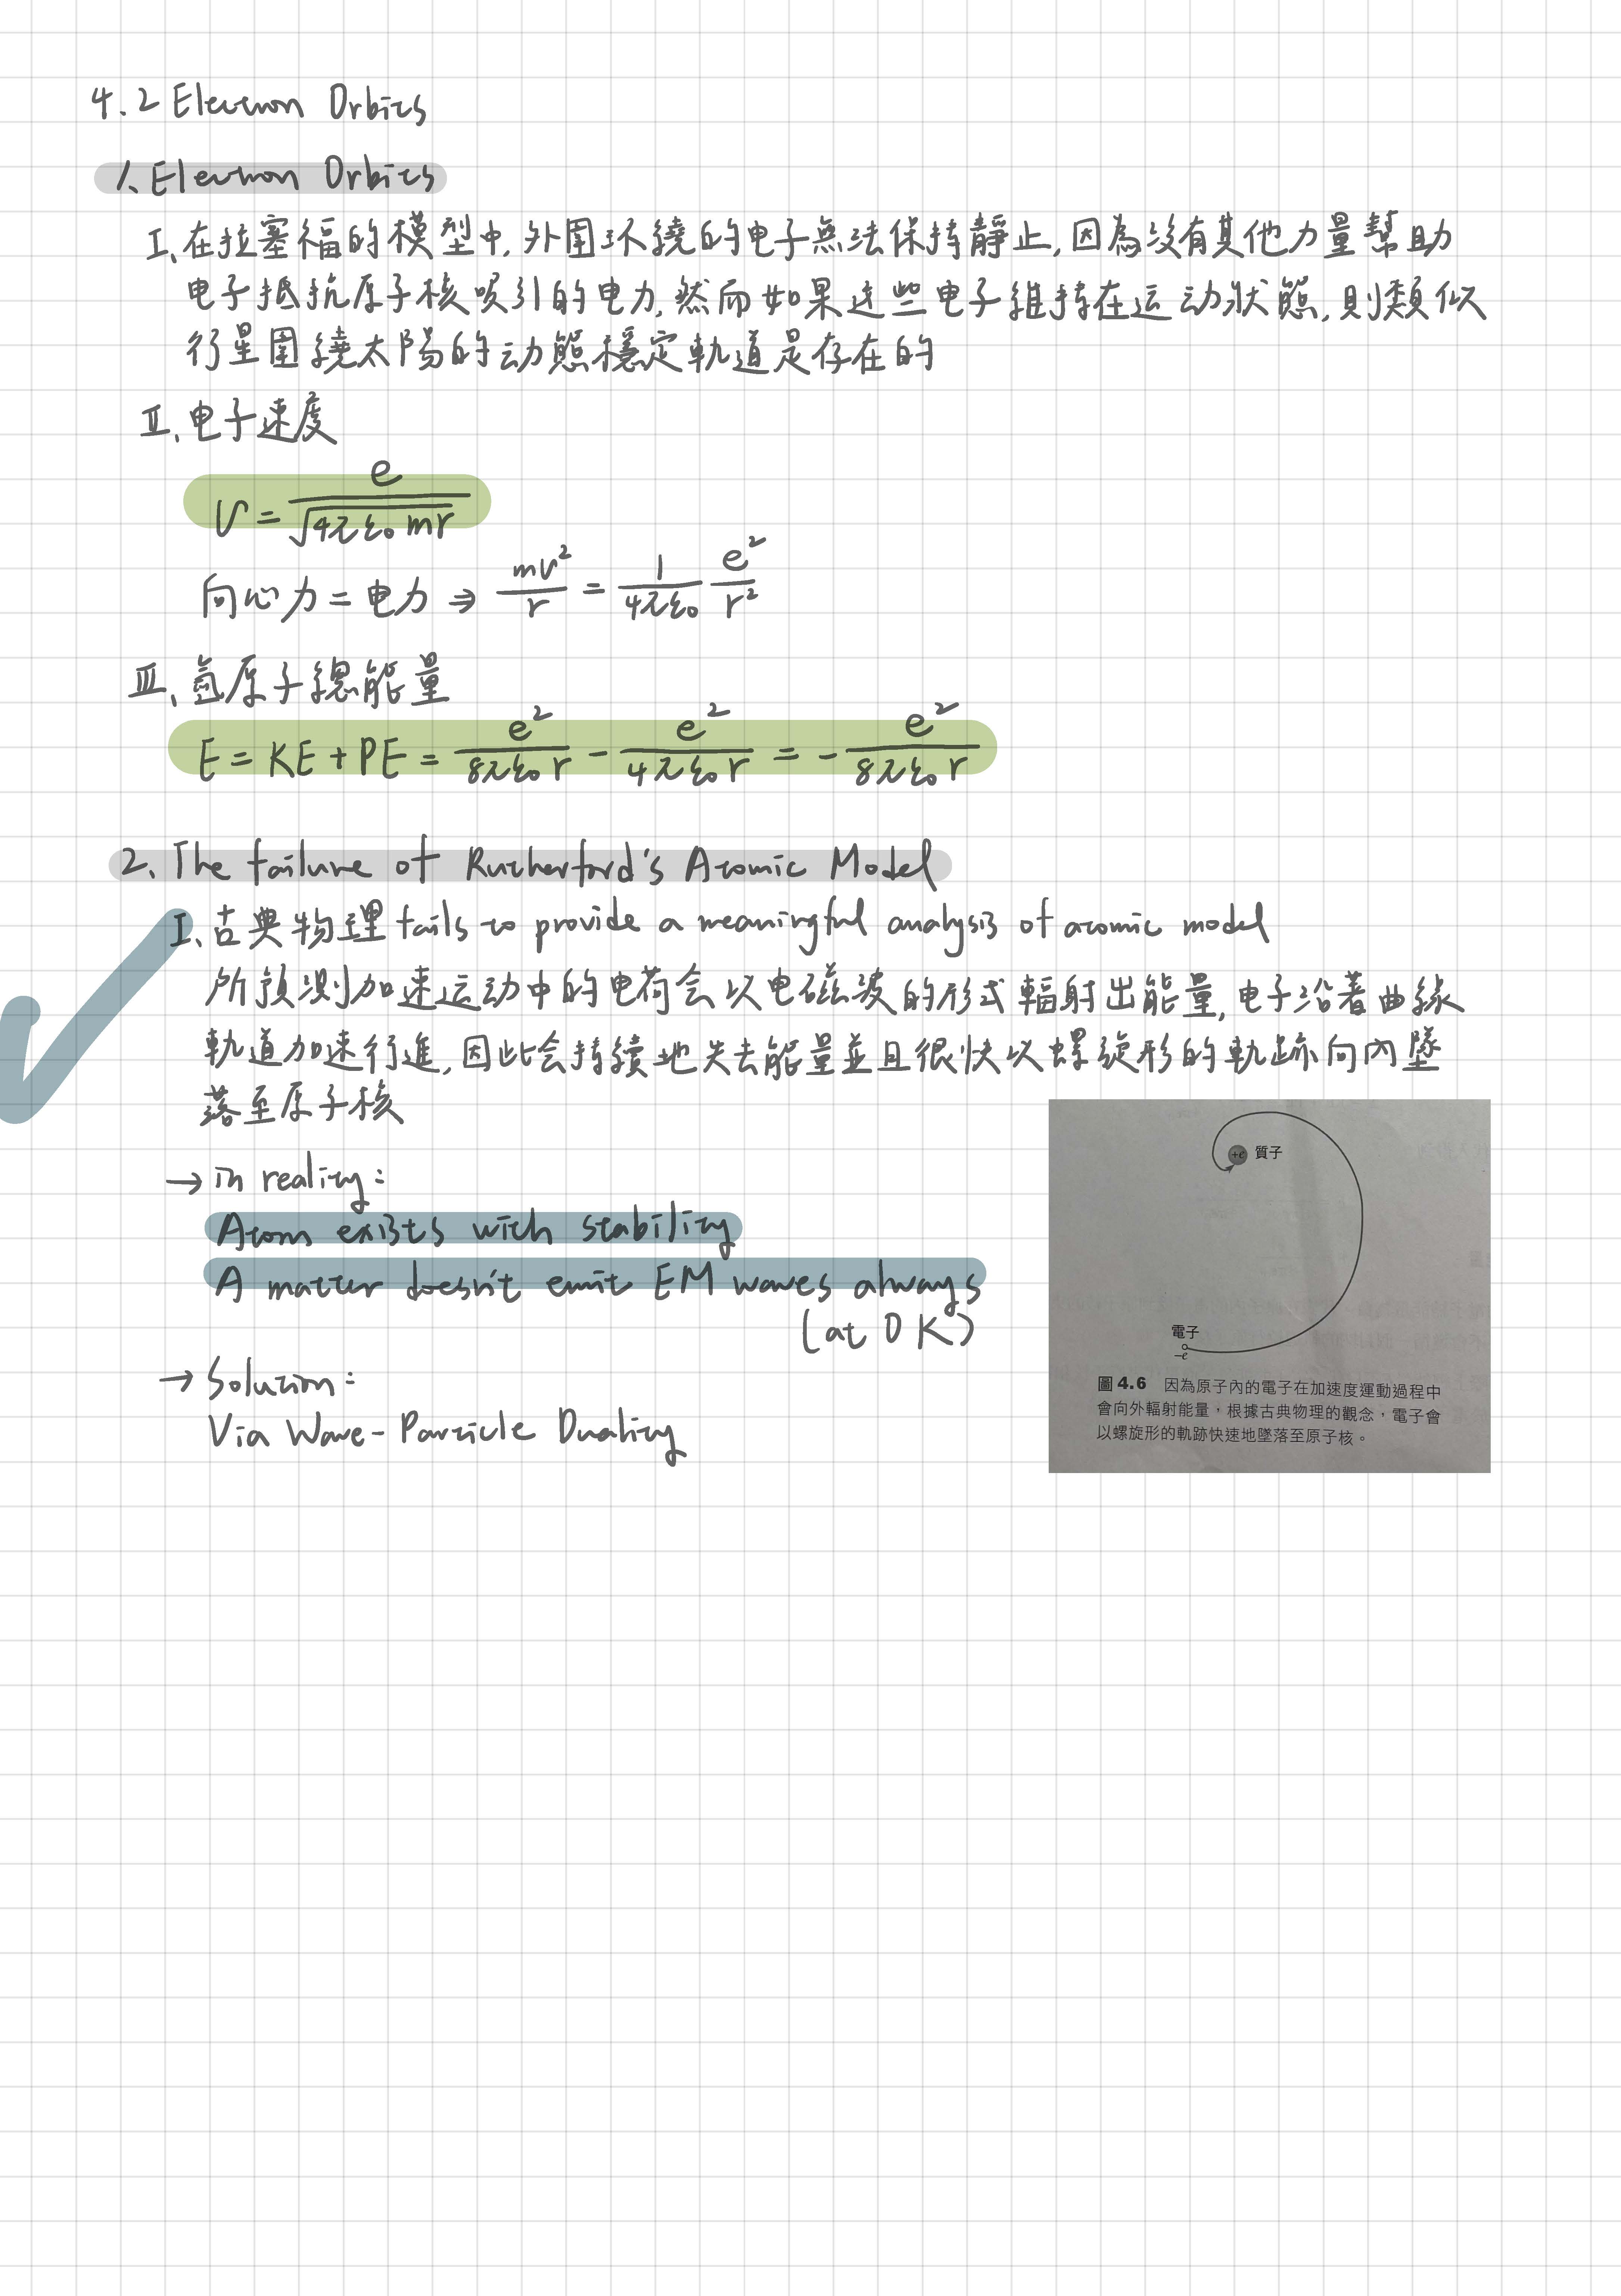 4.2 Electron Orbits
1. Electron Orbits
I. 在拉塞福的模型中, 外圍环繞的电子無法保持靜止, 因為沒有其他力量幫助
电子抵抗原子核吸引的电力, 然而如果这些电子維持在运动狀態, 則類似
行星圍繞太陽的动態穩定軌道是存在的
II. 电子速度
v = e / √(4πε₀mr)
向心力 = 电力 ⇒ mv²/r = 1/4πε₀ e²/r²
III. 氫原子總能量
E = KE + PE = e²/8πε₀r - e²/4πε₀r = - e²/8πε₀r
2. The failure of Rutherford's Atomic Model
I. 古典物理 fails to provide a meaningful analysis of atomic model
所預測加速运动中的电荷会以电磁波的形式輻射出能量, 电子沿著曲線
軌道加速行進, 因此会持續地失去能量並且很快以螺旋形的軌跡向內墜
落至原子核
→ in reality:
Atom exists with stability
A matter doesn't emit EM waves always
(at 0 K)
→ Solution:
Via Wave-Particle Duality
+e 質子
電子
-e
圖 4.6 因為原子內的電子在加速度運動過程中
會向外輻射能量,根據古典物理的觀念,電子會
以螺旋形的軌跡快速地墜落至原子核。